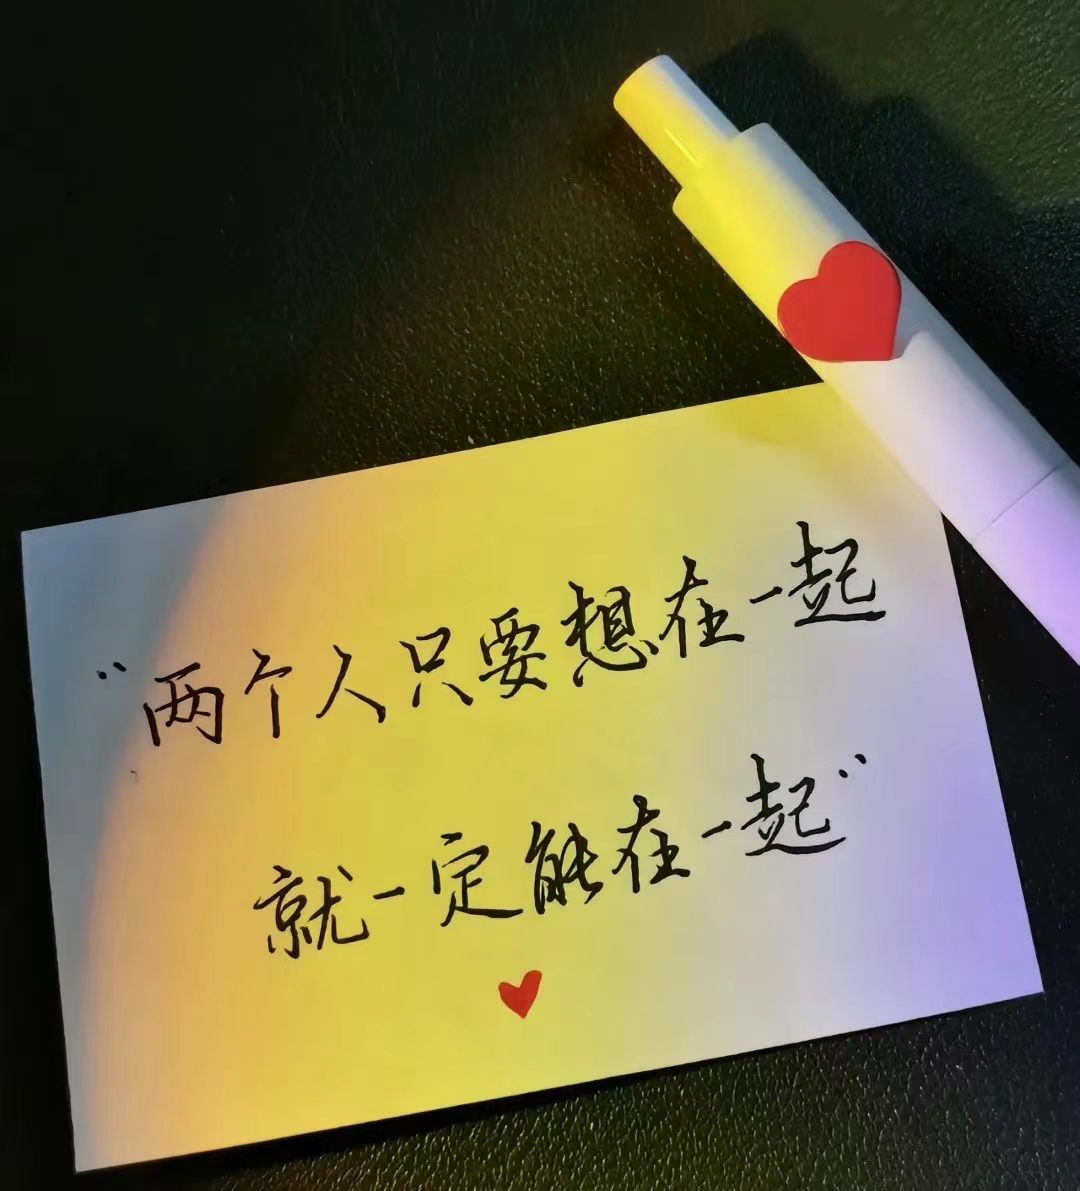 “两个人只要想在一起
就一定能在一起”